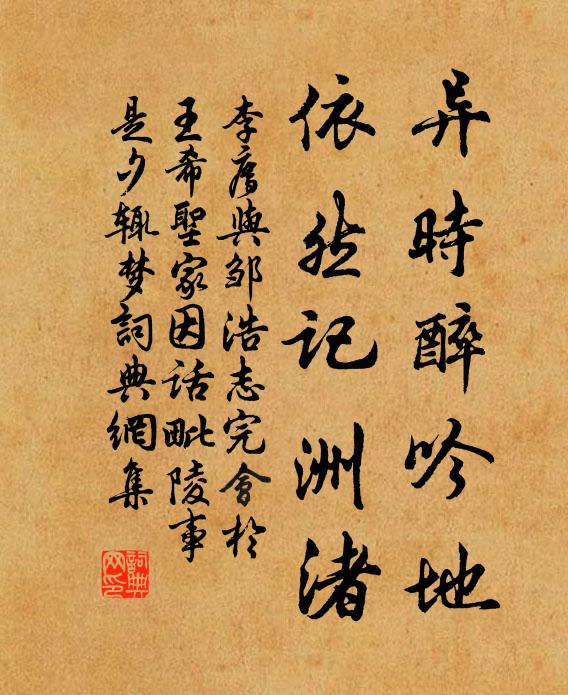 异時醉吟地
依然記洲渚
李廌與鄒浩志完會於
王希聖家因話毗陵事
是夕輒梦詞典網集
詞典网印